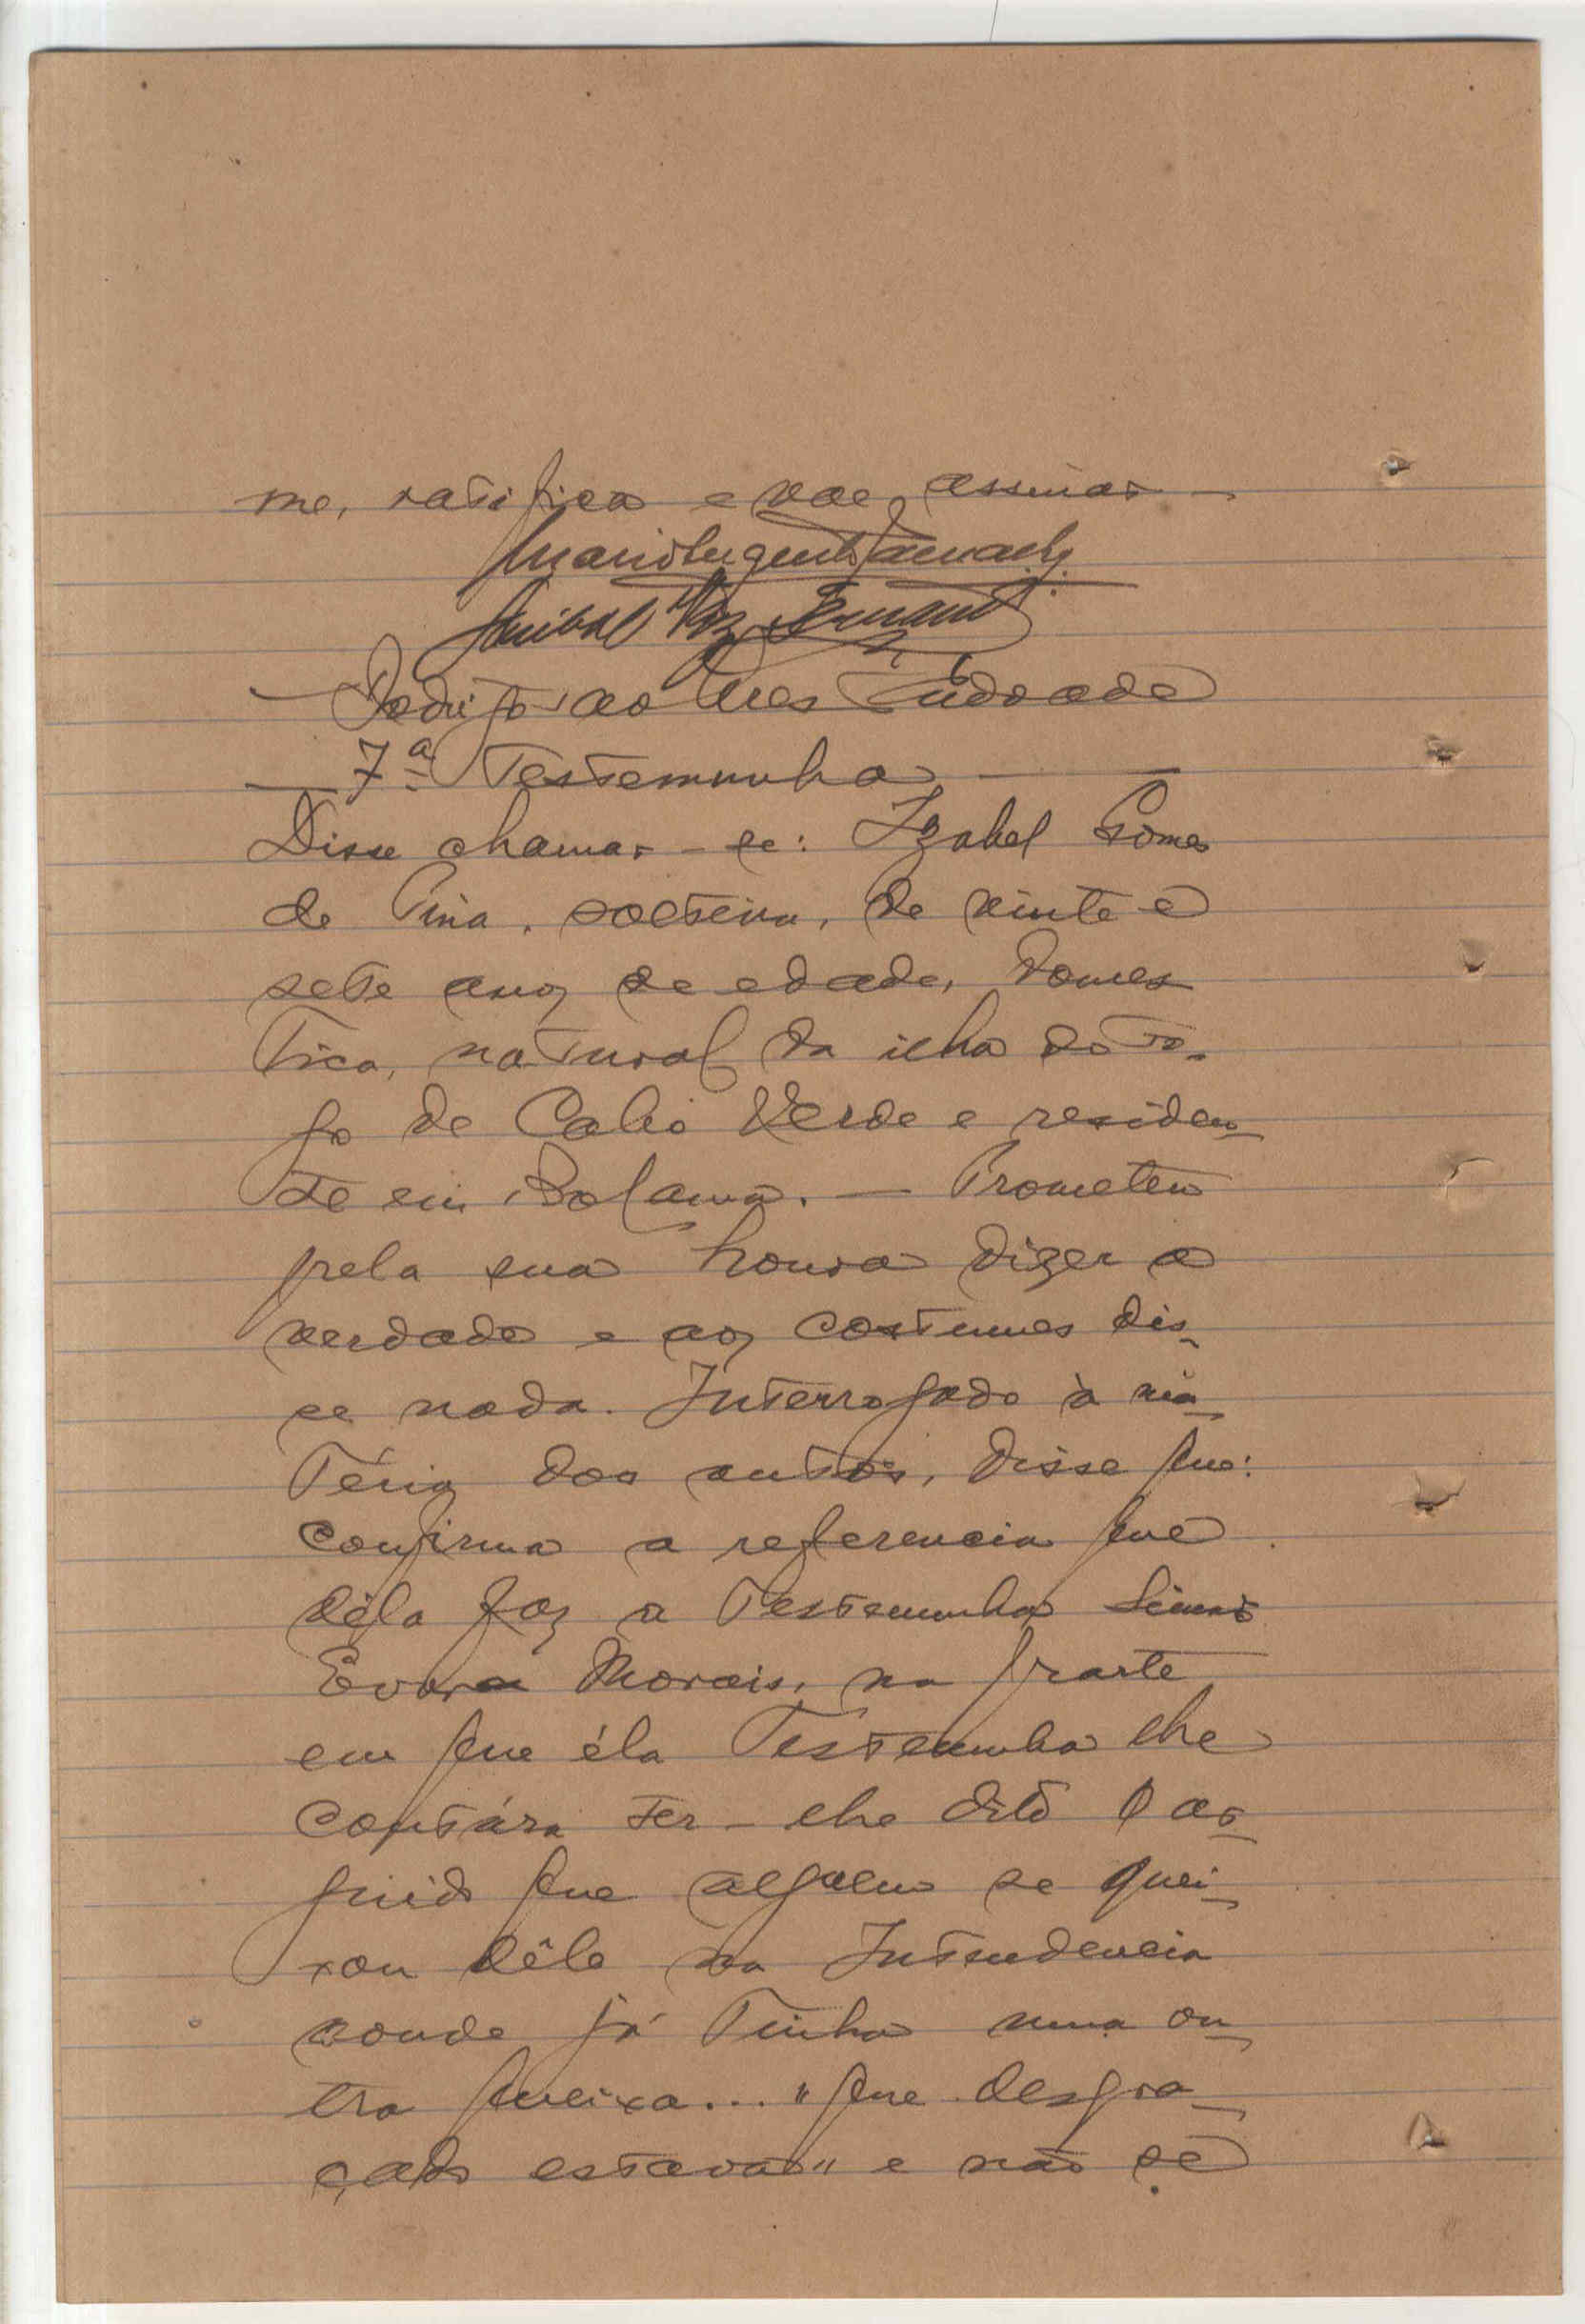 me, ratifica e vae assinar —
Anibal Vaz
— Rodrigo ao Andrade
— 7ª Testemunha —
Disse chamar-se: Izabel Gomes
de Pina, solteira, de vinte e
sete anos de edade, domes
tica, natural da ilha do Fo-
go de Cabo Verde e residen-
te em Bolama. — Prometeu
pela sua honra dizer a
verdade e aos costumes dis-
se nada. Interrogado à ma-
téria dos autos, disse que:
confirma a referencia que
déla faz a testemunha
Evora Morais, na parte
em que éla testemunha lhe
contára ter-lhe dito o ar-
guido que alguem se quei-
xou dêle na Intendencia
aonde já tinha uma ou-
tra queixa... "que desgra-
çado estava" e não se